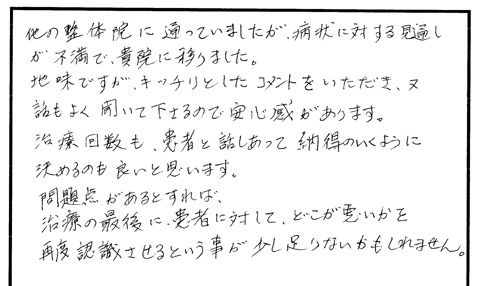 他の整体院に通っていましたが、病状に対する見通し
が不満で、貴院に移りました。
地味ですが、キッチリとしたコメントをいただき、又
話もよく聞いて下さるので安心感があります。
治療回数も、患者と話しあって納得のいくように
決めるのも良いと思います。
問題点があるとすれば、
治療の最後に、患者に対して、どこが悪いかを
再度認識させるという事が少し足りないかもしれません。